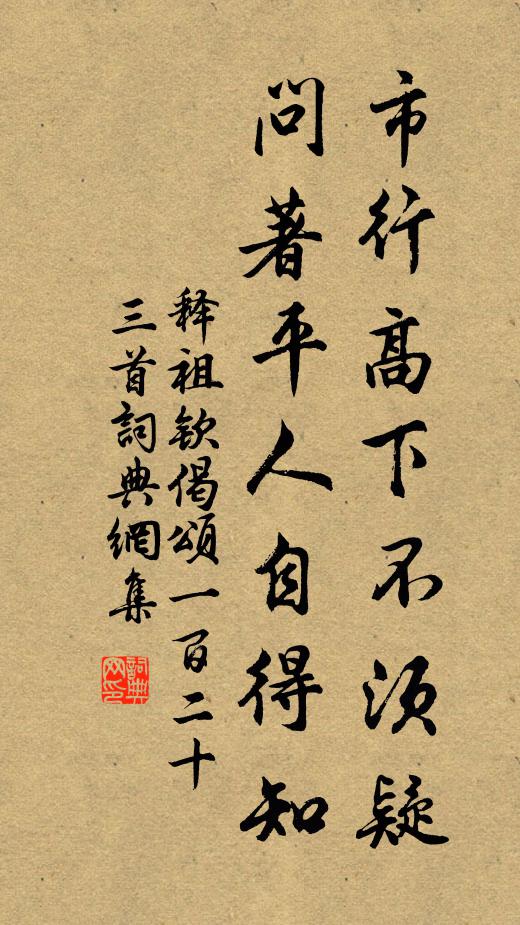 市行高下不须疑
問著平人自得知
释祖欽偈頌一百二十
三首詞典網集
詞典网印